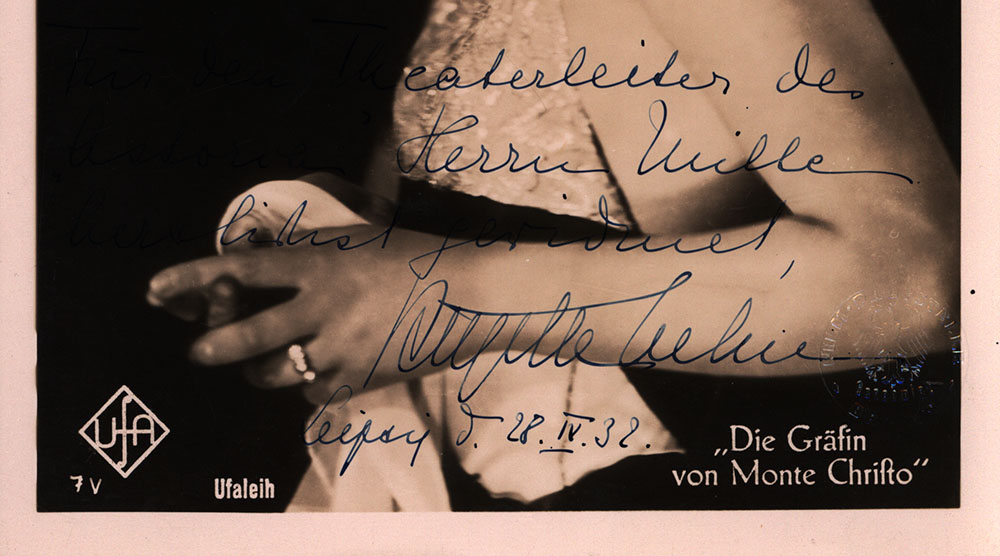 Für den Theaterleiter des
"Astoria" Herrn Wille
herzlichst gewidmet,
Brigitte Helm
Leipzig d. 28. IV. 32.
UfA
7 V
Ufaleih
„Die Gräfin
von Monte Chriſto“